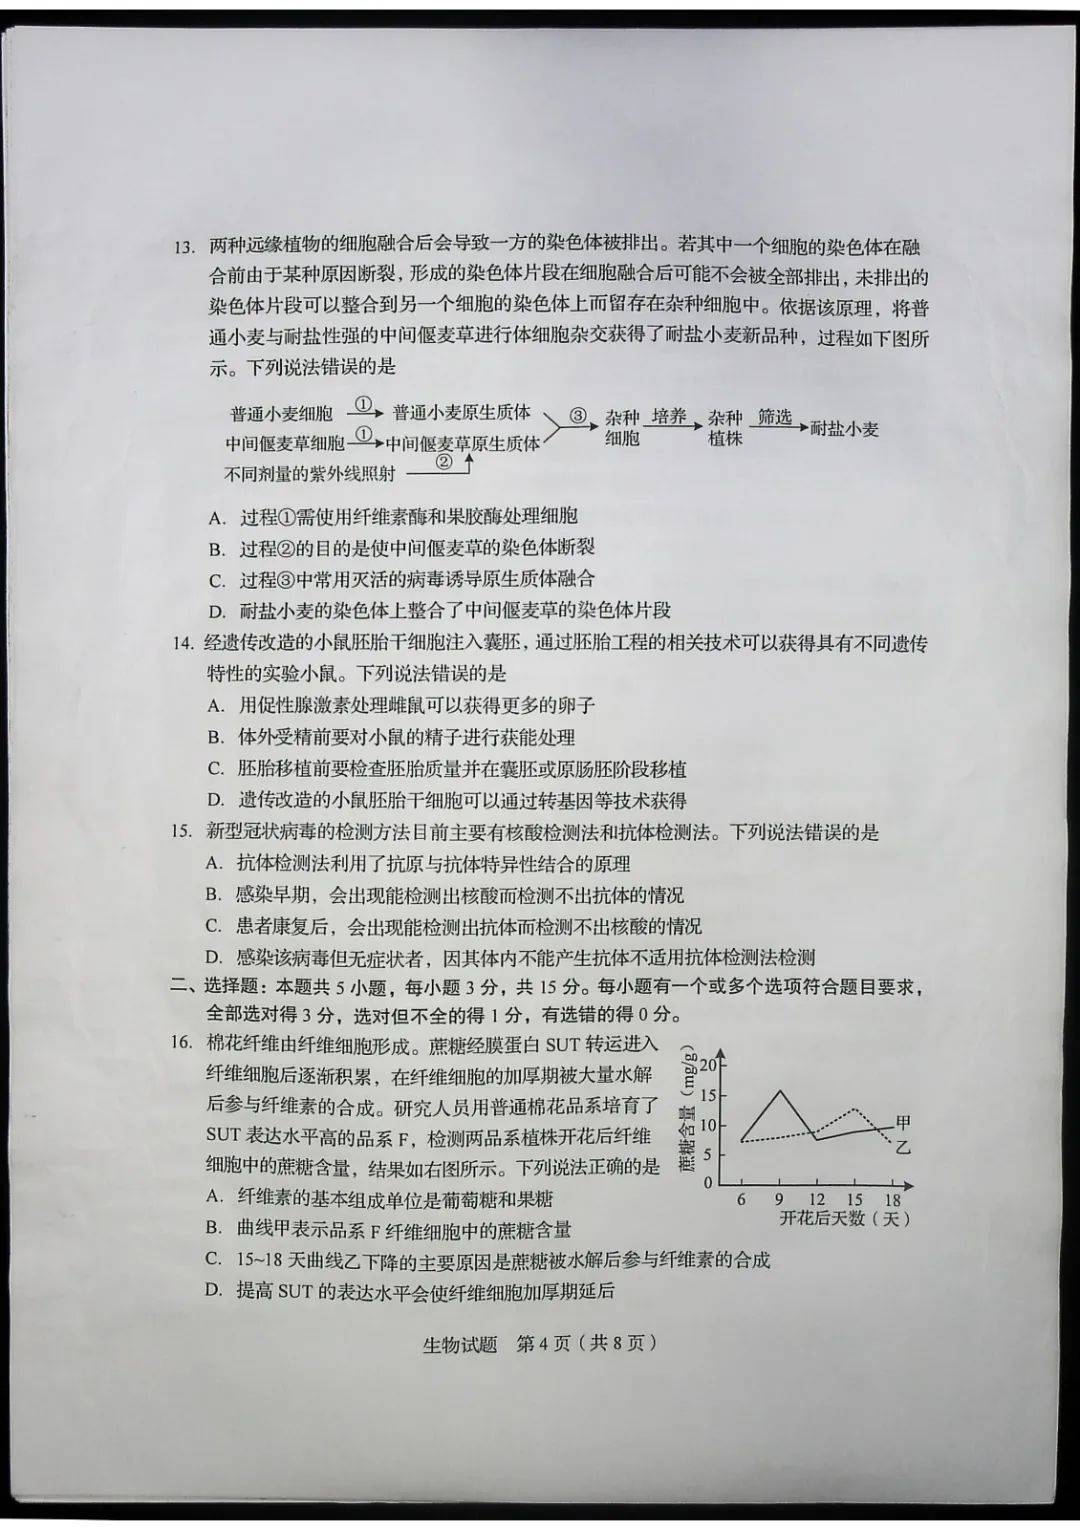 13. 两种远缘植物的细胞融合后会导致一方的染色体被排出。若其中一个细胞的染色体在融
合前由于某种原因断裂，形成的染色体片段在细胞融合后可能不会被全部排出，未排出的
染色体片段可以整合到另一个细胞的染色体上而留存在杂种细胞中。依据该原理，将普
通小麦与耐盐性强的中间偃麦草进行体细胞杂交获得了耐盐小麦新品种，过程如下图所
示。下列说法错误的是
普通小麦细胞 ① 普通小麦原生质体
中间偃麦草细胞 ① 中间偃麦草原生质体
③ 杂种细胞 培养 杂种植株 筛选 耐盐小麦
不同剂量的紫外线照射 ②
A. 过程①需使用纤维素酶和果胶酶处理细胞
B. 过程②的目的是使中间偃麦草的染色体断裂
C. 过程③中常用灭活的病毒诱导原生质体融合
D. 耐盐小麦的染色体上整合了中间偃麦草的染色体片段
14. 经遗传改造的小鼠胚胎干细胞注入囊胚，通过胚胎工程的相关技术可以获得具有不同遗传
特性的实验小鼠。下列说法错误的是
A. 用促性腺激素处理雌鼠可以获得更多的卵子
B. 体外受精前要对小鼠的精子进行获能处理
C. 胚胎移植前要检查胚胎质量并在囊胚或原肠胚阶段移植
D. 遗传改造的小鼠胚胎干细胞可以通过转基因等技术获得
15. 新型冠状病毒的检测方法目前主要有核酸检测法和抗体检测法。下列说法错误的是
A. 抗体检测法利用了抗原与抗体特异性结合的原理
B. 感染早期，会出现能检测出核酸而检测不出抗体的情况
C. 患者康复后，会出现能检测出抗体而检测不出核酸的情况
D. 感染该病毒但无症状者，因其体内不能产生抗体不适用抗体检测法检测
二、选择题：本题共 5 小题，每小题 3 分，共 15 分。每小题有一个或多个选项符合题目要求，
全部选对得 3 分，选对但不全的得 1 分，有选错的得 0 分。
16. 棉花纤维由纤维细胞形成。蔗糖经膜蛋白 SUT 转运进入
纤维细胞后逐渐积累，在纤维细胞的加厚期被大量水解
后参与纤维素的合成。研究人员用普通棉花品系培育了
SUT 表达水平高的品系 F，检测两品系植株开花后纤维
细胞中的蔗糖含量，结果如右图所示。下列说法正确的是
A. 纤维素的基本组成单位是葡萄糖和果糖
B. 曲线甲表示品系 F 纤维细胞中的蔗糖含量
C. 15~18 天曲线乙下降的主要原因是蔗糖被水解后参与纤维素的合成
D. 提高 SUT 的表达水平会使纤维细胞加厚期延后
蔗糖含量（mg/g）
20
15
10
5
0
甲
乙
6 9 12 15 18
开花后天数（天）
生物试题 第 4 页（共 8 页）